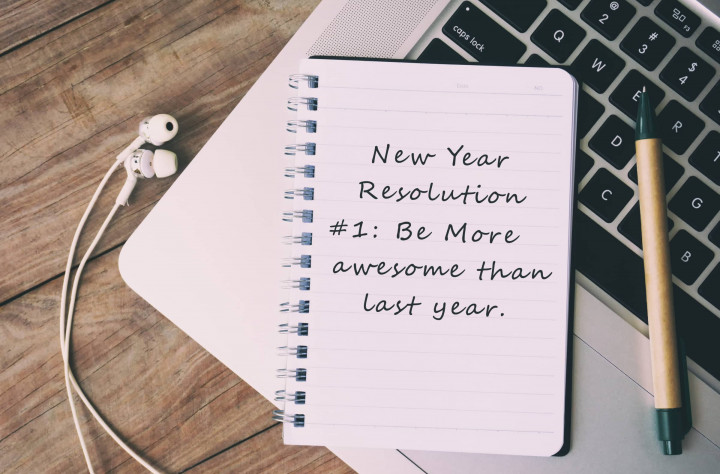 New Year
Resolution
#1: Be More
awesome than
last year.
caps lock
@
2
#
3
$
4
%
Q
W
E
R
T
D
G
C
B